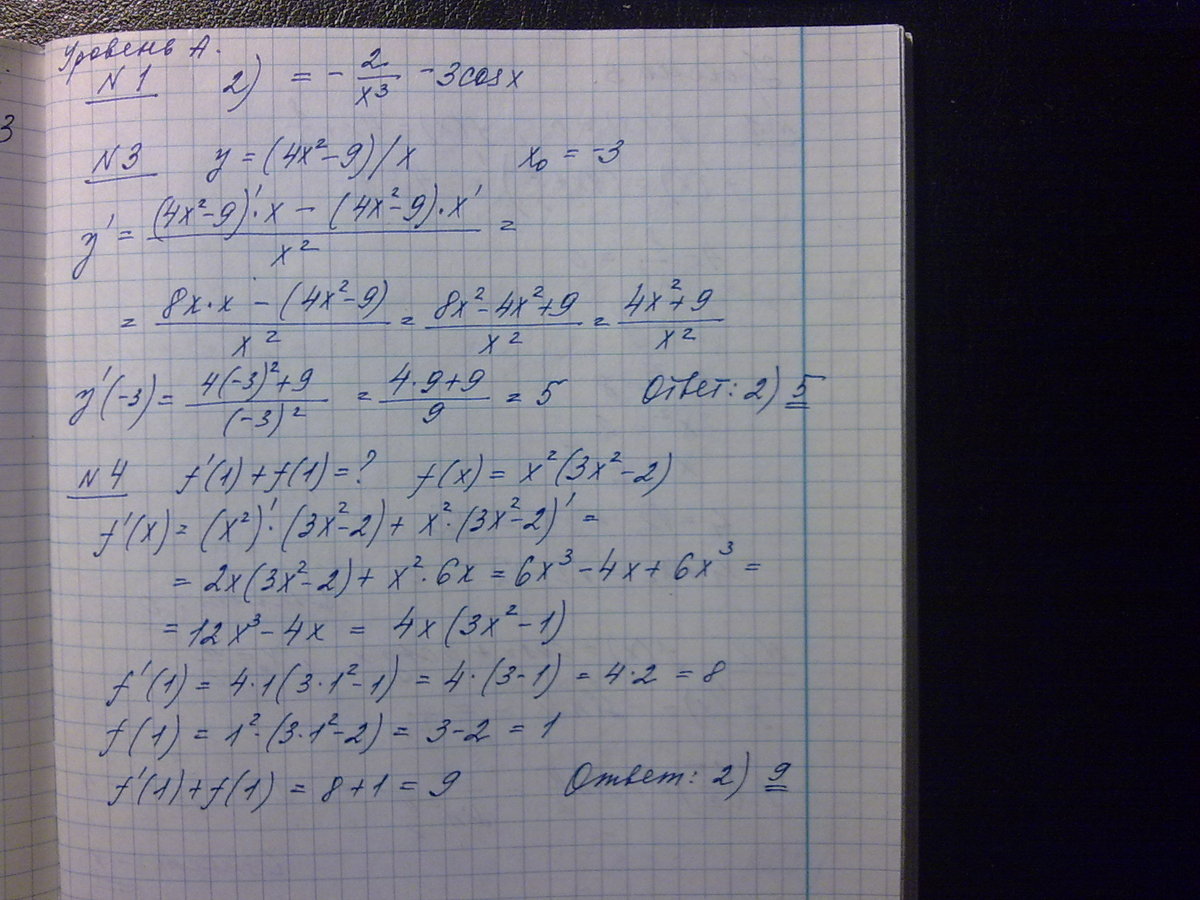 Уровень А.
N1 2) = - 2/x³ - 3cosx
3
N3 y = (4x²-9)/x x₀ = -3
y' = ((4x²-9)'·x - (4x²-9)·x')/x² =
= (8x·x - (4x²-9))/x² = (8x²-4x²+9)/x² = (4x²+9)/x²
y'(-3) = (4(-3)²+9)/(-3)² = (4·9+9)/9 = 5 Ответ: 2) 5
N4 f'(1)+f(1)=? f(x) = x²(3x²-2)
f'(x) = (x²)'·(3x²-2) + x²·(3x²-2)' =
= 2x(3x²-2) + x²·6x = 6x³-4x+6x³ =
= 12x³-4x = 4x(3x²-1)
f'(1) = 4·1(3·1²-1) = 4·(3-1) = 4·2 = 8
f(1) = 1²·(3·1²-2) = 3-2 = 1
f'(1)+f(1) = 8+1 = 9 Ответ: 2) 9